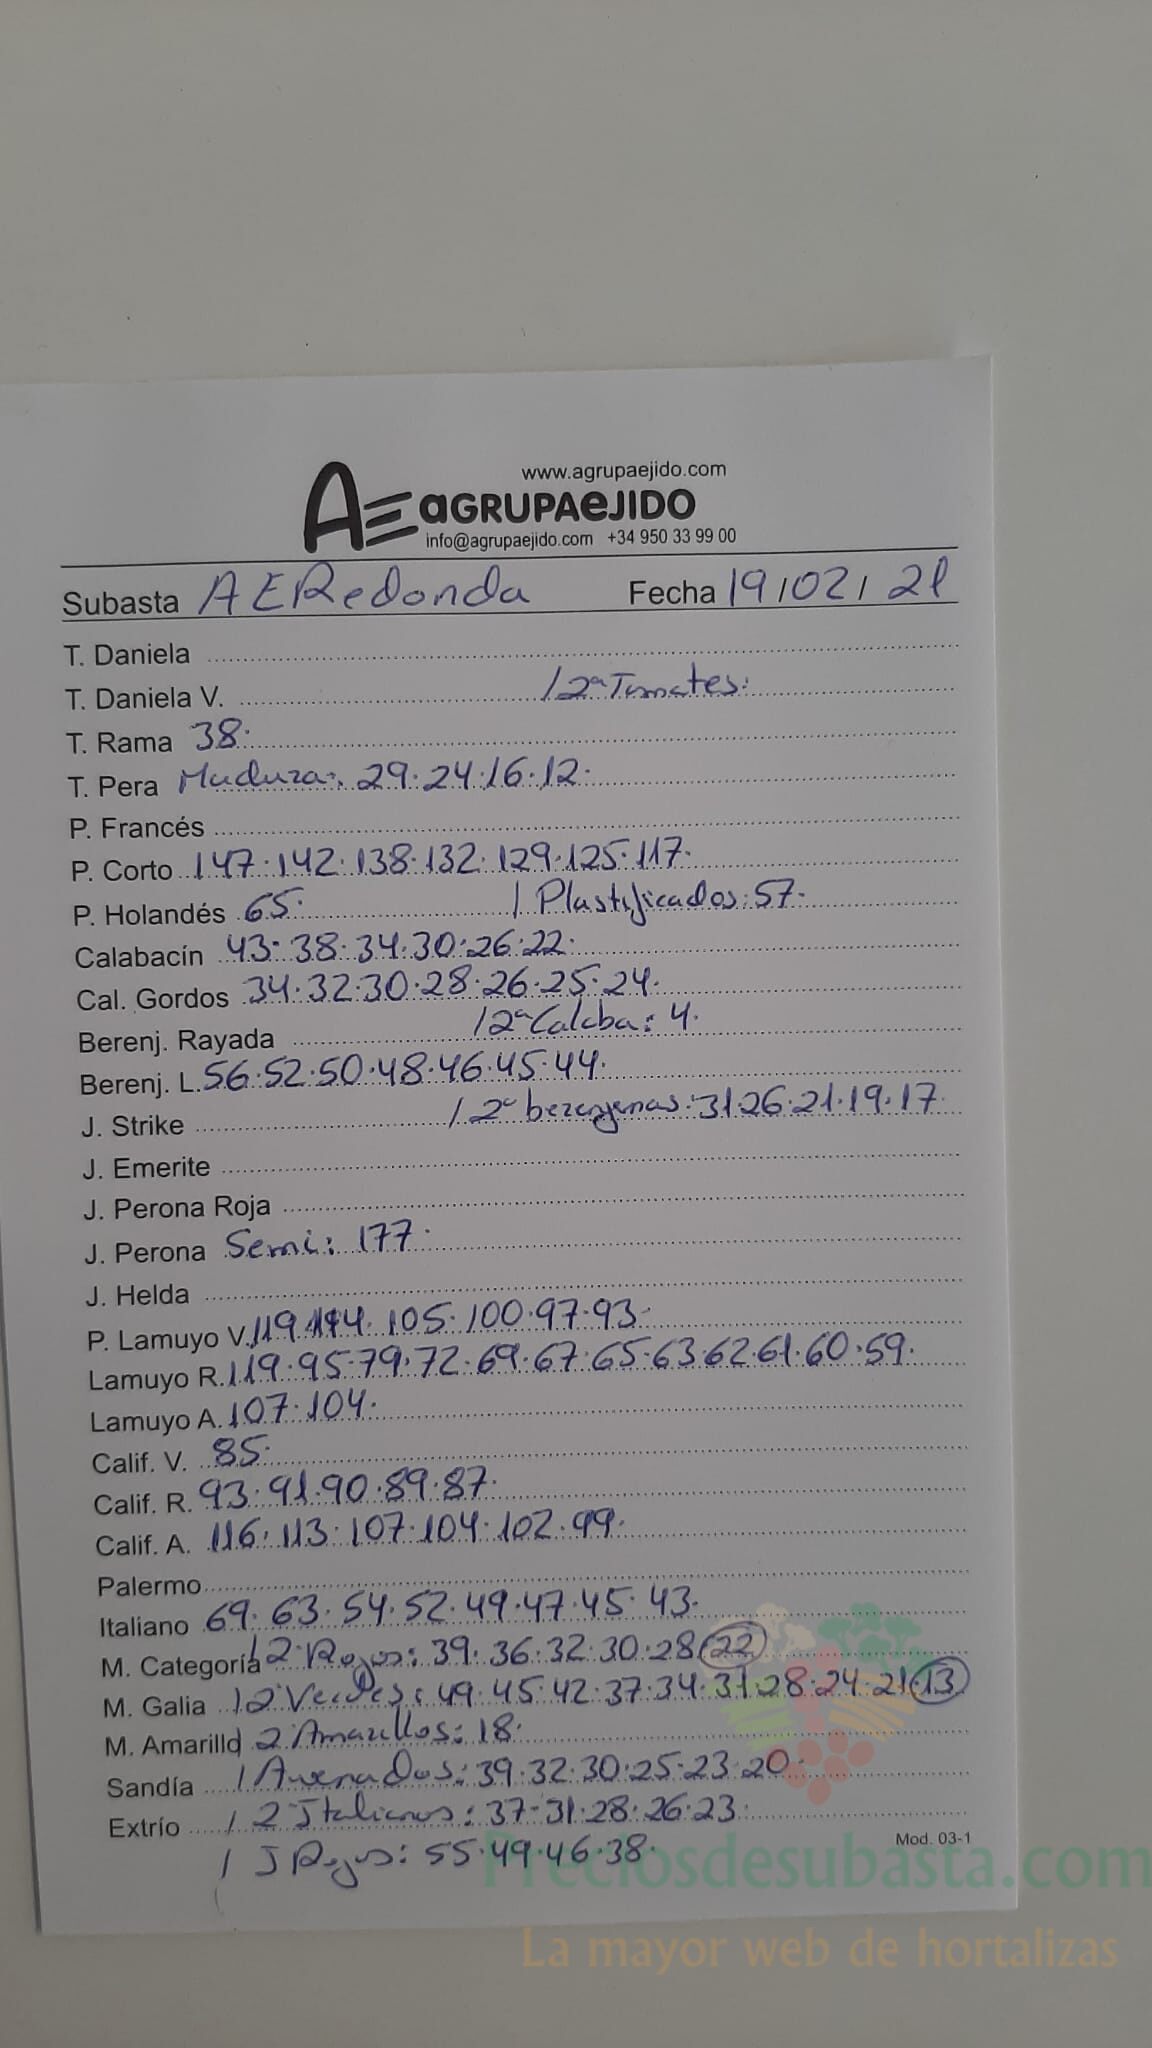 www.agrupaejido.com
AE aGRUPAeJIDO
info@agrupaejido.com +34 950 33 99 00
Subasta AERedonda Fecha 19/02/21
T. Daniela
T. Daniela V. / 2ª Tomates:
T. Rama 38.
T. Pera Maduras. 29.24.16.12.
P. Francés
P. Corto 147.142.138.132.129.125.117.
P. Holandés 65. / Plastificados: 57.
Calabacín 43.38.34.30.26.22.
Cal. Gordos 34.32.30.28.26.25.24.
Berenj. Rayada / 2ª Calaba: 4.
Berenj. L. 56.52.50.48.46.45.44.
J. Strike / 2ª berenjenas: 31.26.21.19.17.
J. Emerite
J. Perona Roja
J. Perona Semi: 177.
J. Helda
P. Lamuyo V. 119.114.105.100.97.93.
Lamuyo R. 119.95.79.72.69.67.65.63.62.61.60.59.
Lamuyo A. 107.104.
Calif. V. 85.
Calif. R. 93.91.90.89.87.
Calif. A. 116.113.107.104.102.99.
Palermo
Italiano 69.63.54.52.49.47.45.43.
M. Categoría / 2ª Rojos: 39.36.32.30.28 22
M. Galia / 2 Verdes: 49.45.42.37.34.31.28.24.21. 13
M. Amarillo / 2 Amarillos: 18.
Sandía / Asurados: 39.32.30.25.23.20.
Extrío / 2 Italianos: 37.31.28.26.23.
Mod. 03-1
/ J Rojos: 55.49.46.38.
Preciosdesubasta.com
La mayor web de hortalizas